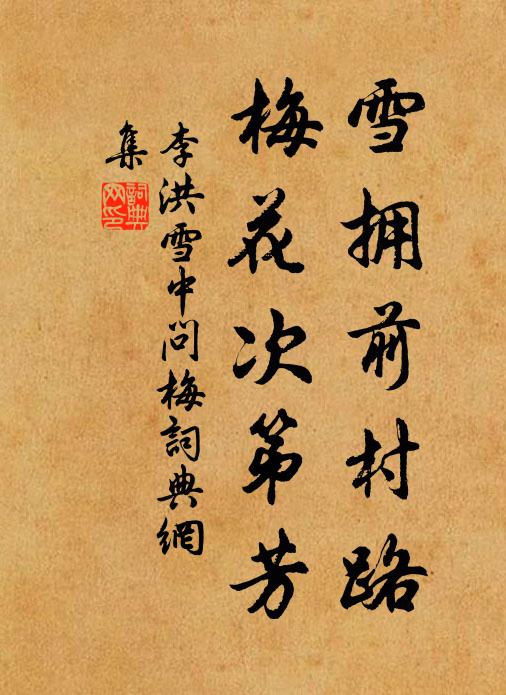 雪拥前村路
梅花次第芳
李洪雪中问梅詞典網
集
詞典
网印